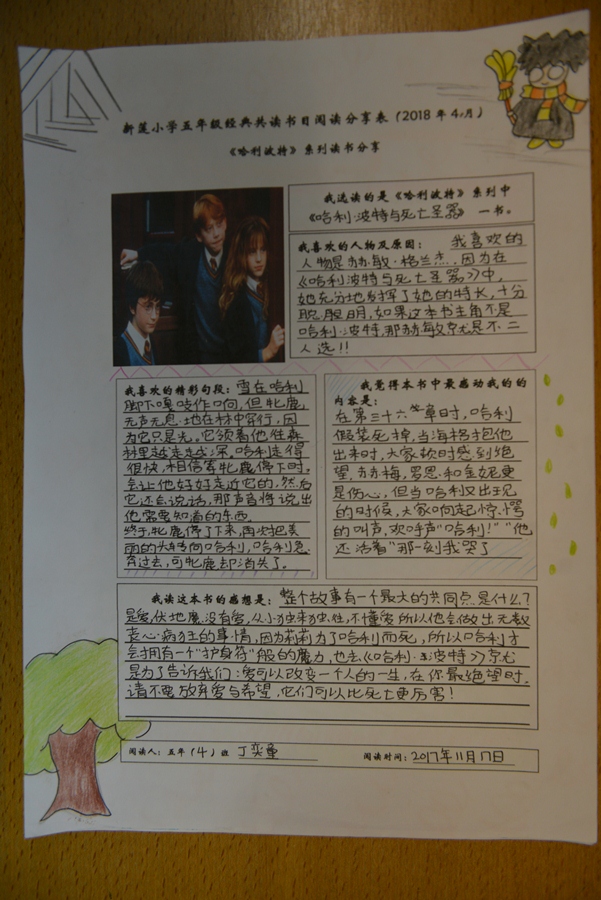 新莲小学五年级经典共读书目阅读分享表（2018年4月）
《哈利波特》系列读书分享
我选读的是《哈利波特》系列中
《哈利·波特与死亡圣器》一书。
我喜欢的人物及原因：我喜欢的
人物是赫敏·格兰杰，因为在
《哈利波特与死亡圣器》中，
她充分地发挥了她的特长，十分
聪明，如果这本书主角不是
哈利·波特，那赫敏就是不二
人选!!
我喜欢的精彩句段：雪在哈利
脚下嘎吱作响，但牝鹿
无声无息地在林中穿行，因
为它只是光。它领着他往森
林里越走越深。哈利走得
很快，相信等牝鹿停下时，
会让他好好走近它的，然后
它还会说话，那声音将说出
他需要知道的东西。
终于，牝鹿停了下来，再次把美
丽的头转向哈利，哈利急
奔过去，可牝鹿却消失了。
我觉得本书中最感动我的的
内容是：
在第三十六章时，哈利
假装死掉，当海格抱他
出来时，大家顿时感到绝
望，赫梅，罗恩和金妮更
是伤心，但当哈利又出现
的时候，大家响起惊愕
的叫声，欢呼声“哈利！”“他
还活着”那一刻我哭了
我读这本书的感想是：整个故事有一个最大的共同点是什么？
是爱，伏地魔没有爱，从小独来独往，不懂爱所以他会做出无数
丧心病狂的事情，因为莉莉为了哈利而死，所以哈利才
会拥有一个“护身符”般的魔力，也去《哈利·波特》就
是为了告诉我们：爱可以改变一个人的一生，在你最绝望时，
请不要放弃爱与希望，它们可以比死亡更厉害！
阅读人：五年（4）班 丁奕童 阅读时间：2017年11月17日